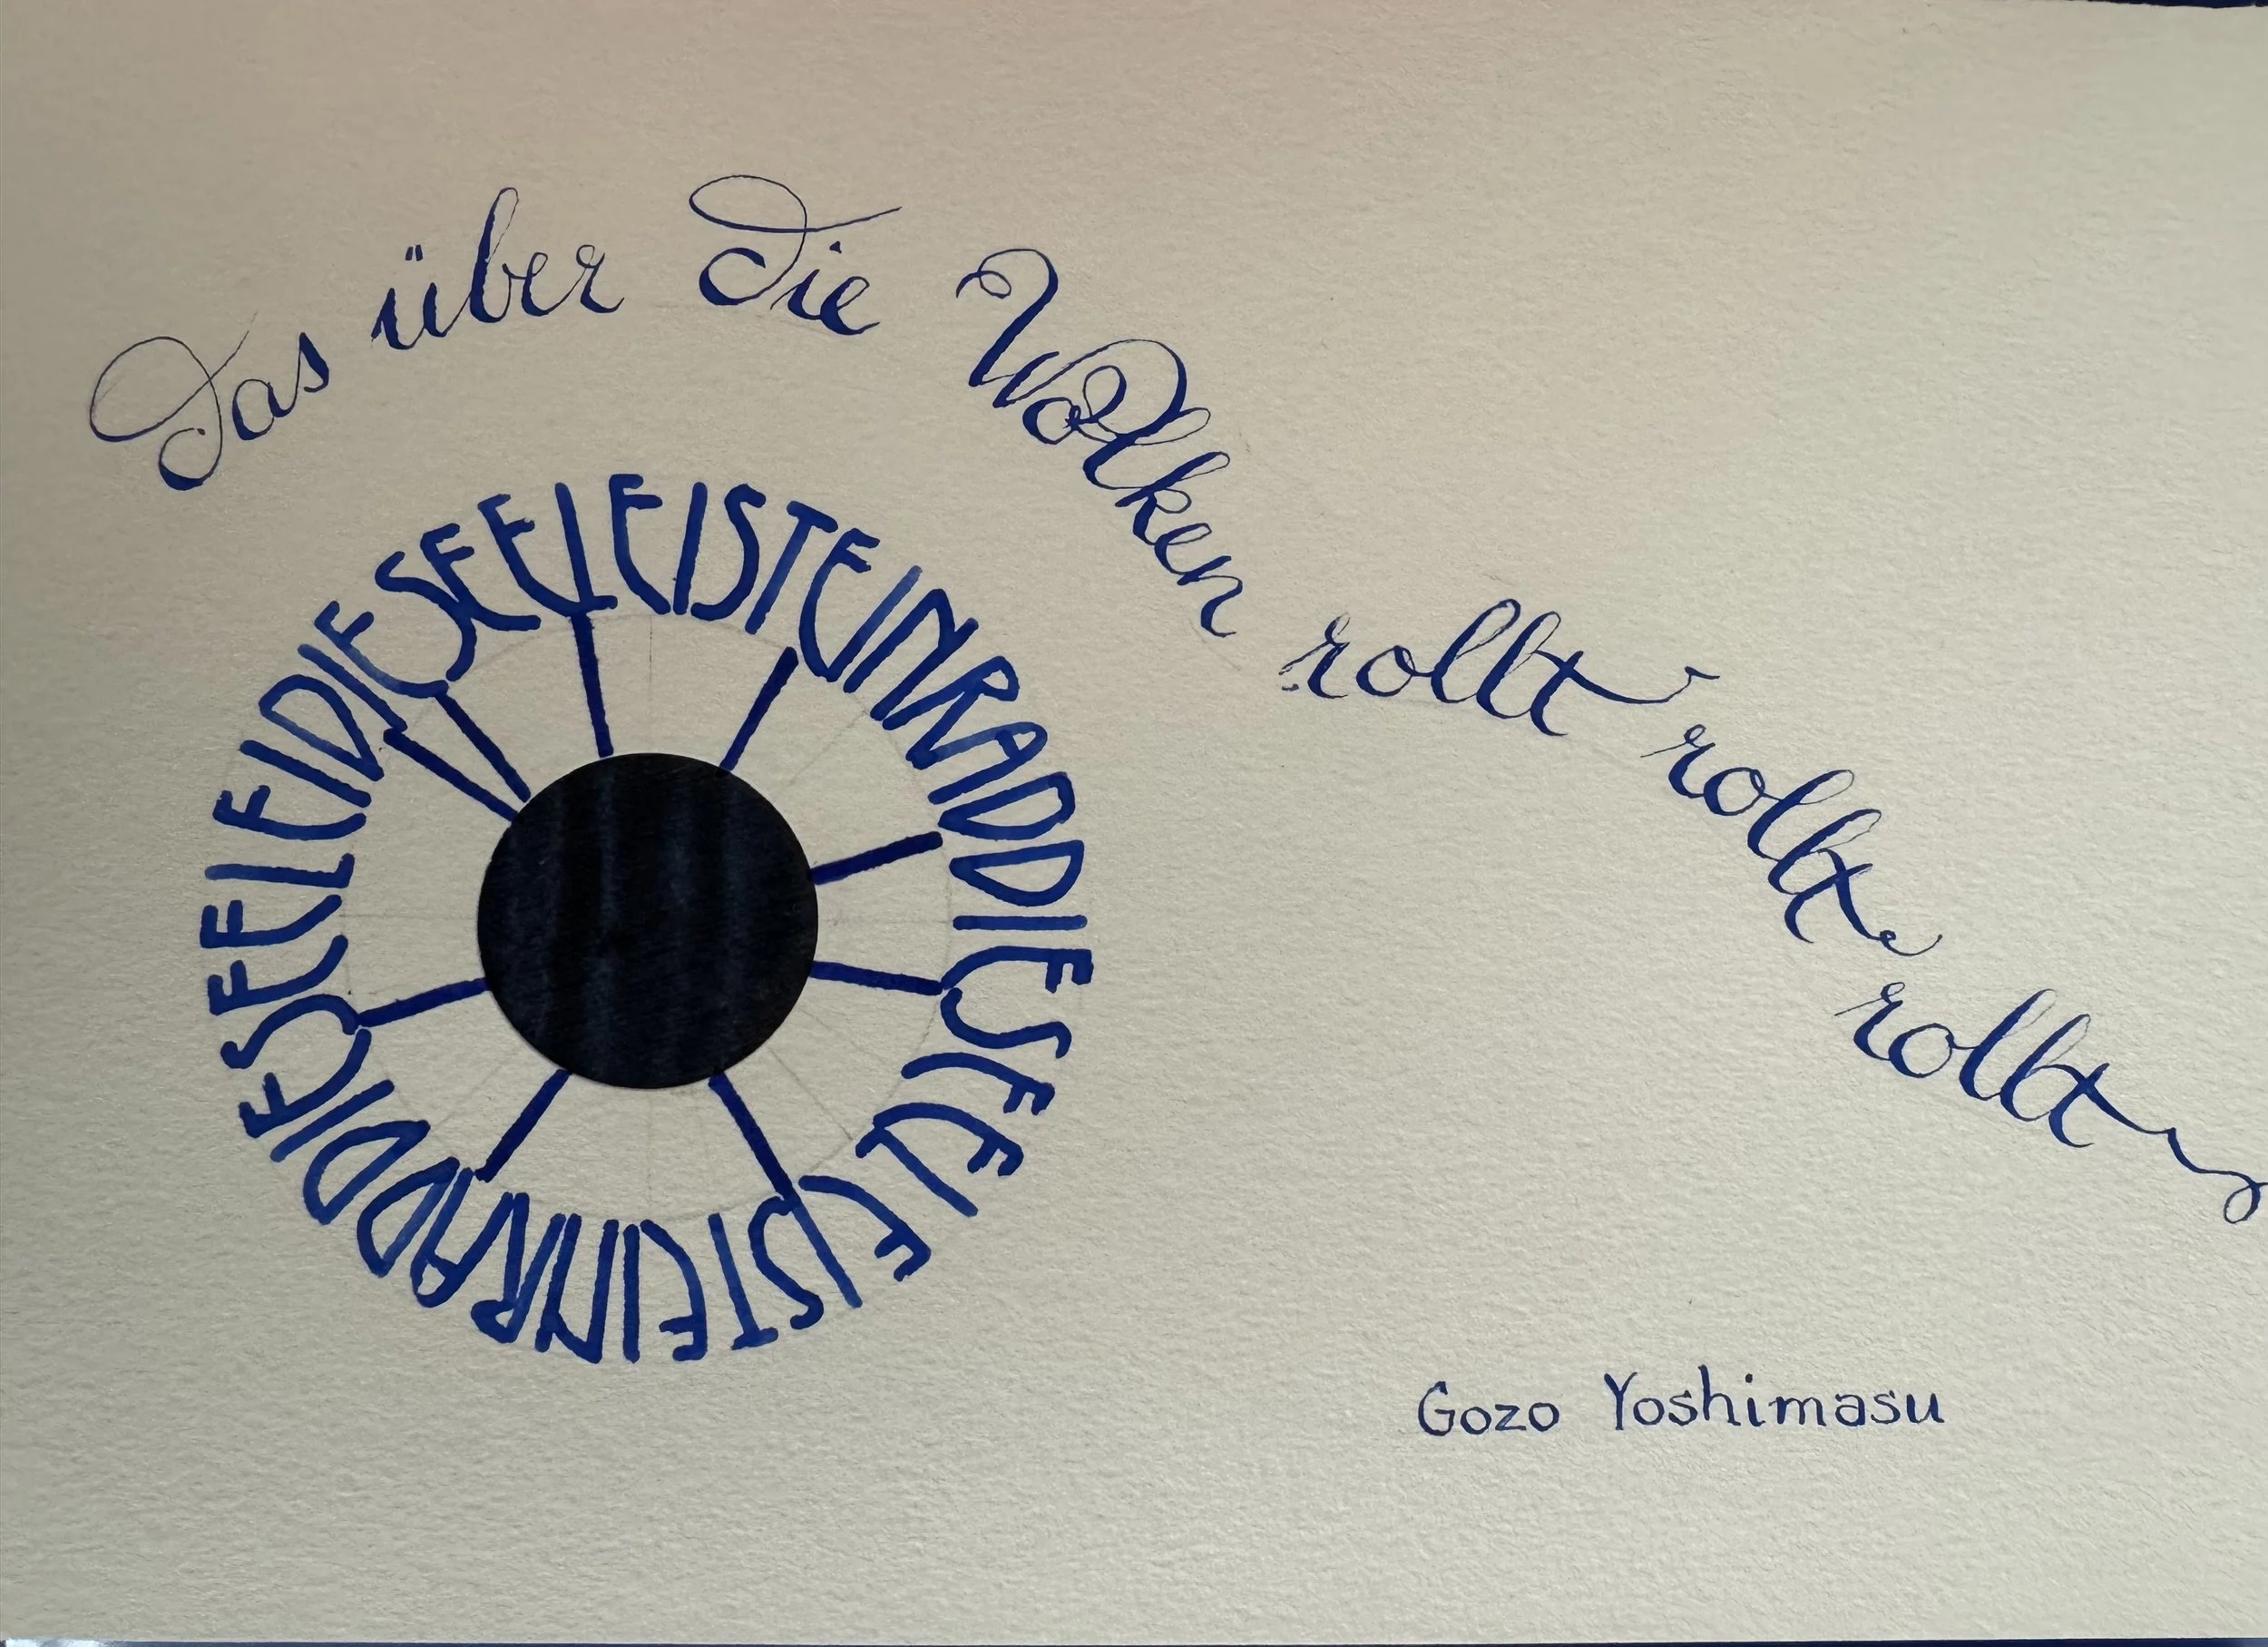 das über die Wolken rollt rollt rollt
DIESEELEISTEINRADDIESEELEISTEINRADDIESEELEI
Gozo Yoshimasu